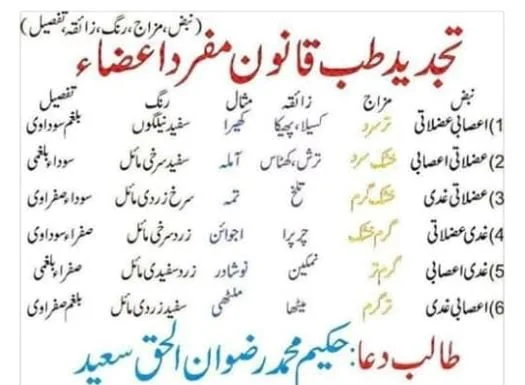 (نبض، مزاج، رنگ، زائقہ، تفصیل)
تجدید طب قانون مفرد اعضاء
نبض مزاج زائقہ مثال رنگ تفصیل
1)اعصابی عضلاتی ترسرد کسیلا، پھیکا کھیرا سفید نیلگوں بلغم سوداوی
2)عضلاتی اعصابی خشک سرد ترش، کھٹاس آملہ سفید سرخی مائل سوداء بلغمی
3)عضلاتی غدی خشک گرم تلخ تمہ سرخ زردی مائل سوداء صفراوی
4)غدی عضلاتی گرم خشک چرپرا اجوائن زرد سرخی مائل صفراء سوداوی
5)غدی اعصابی گرم تر نمکین نوشادر زرد سفیدی مائل صفراء بلغمی
6)اعصابی غدی تر گرم میٹھا ملٹھی سفید زردی مائل بلغم صفراوی
طالب دعا: حکیم محمد رضوان الحق سعید